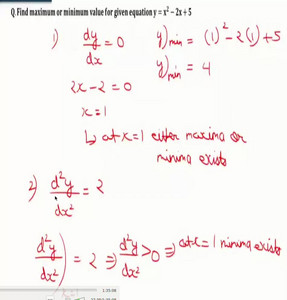 Q. Find maximum or minimum value for given equation y = x² – 2x + 5
1) dy/dx = 0
2x – 2 = 0
x = 1
↳ at x = 1 either maxima or minima exists
y)min = (1)² – 2(1) + 5
y)min = 4
2) d²y/dx² = 2
d²y/dx²) = 2 ⇒ d²y/dx² > 0 ⇒ at x = 1 minima exists